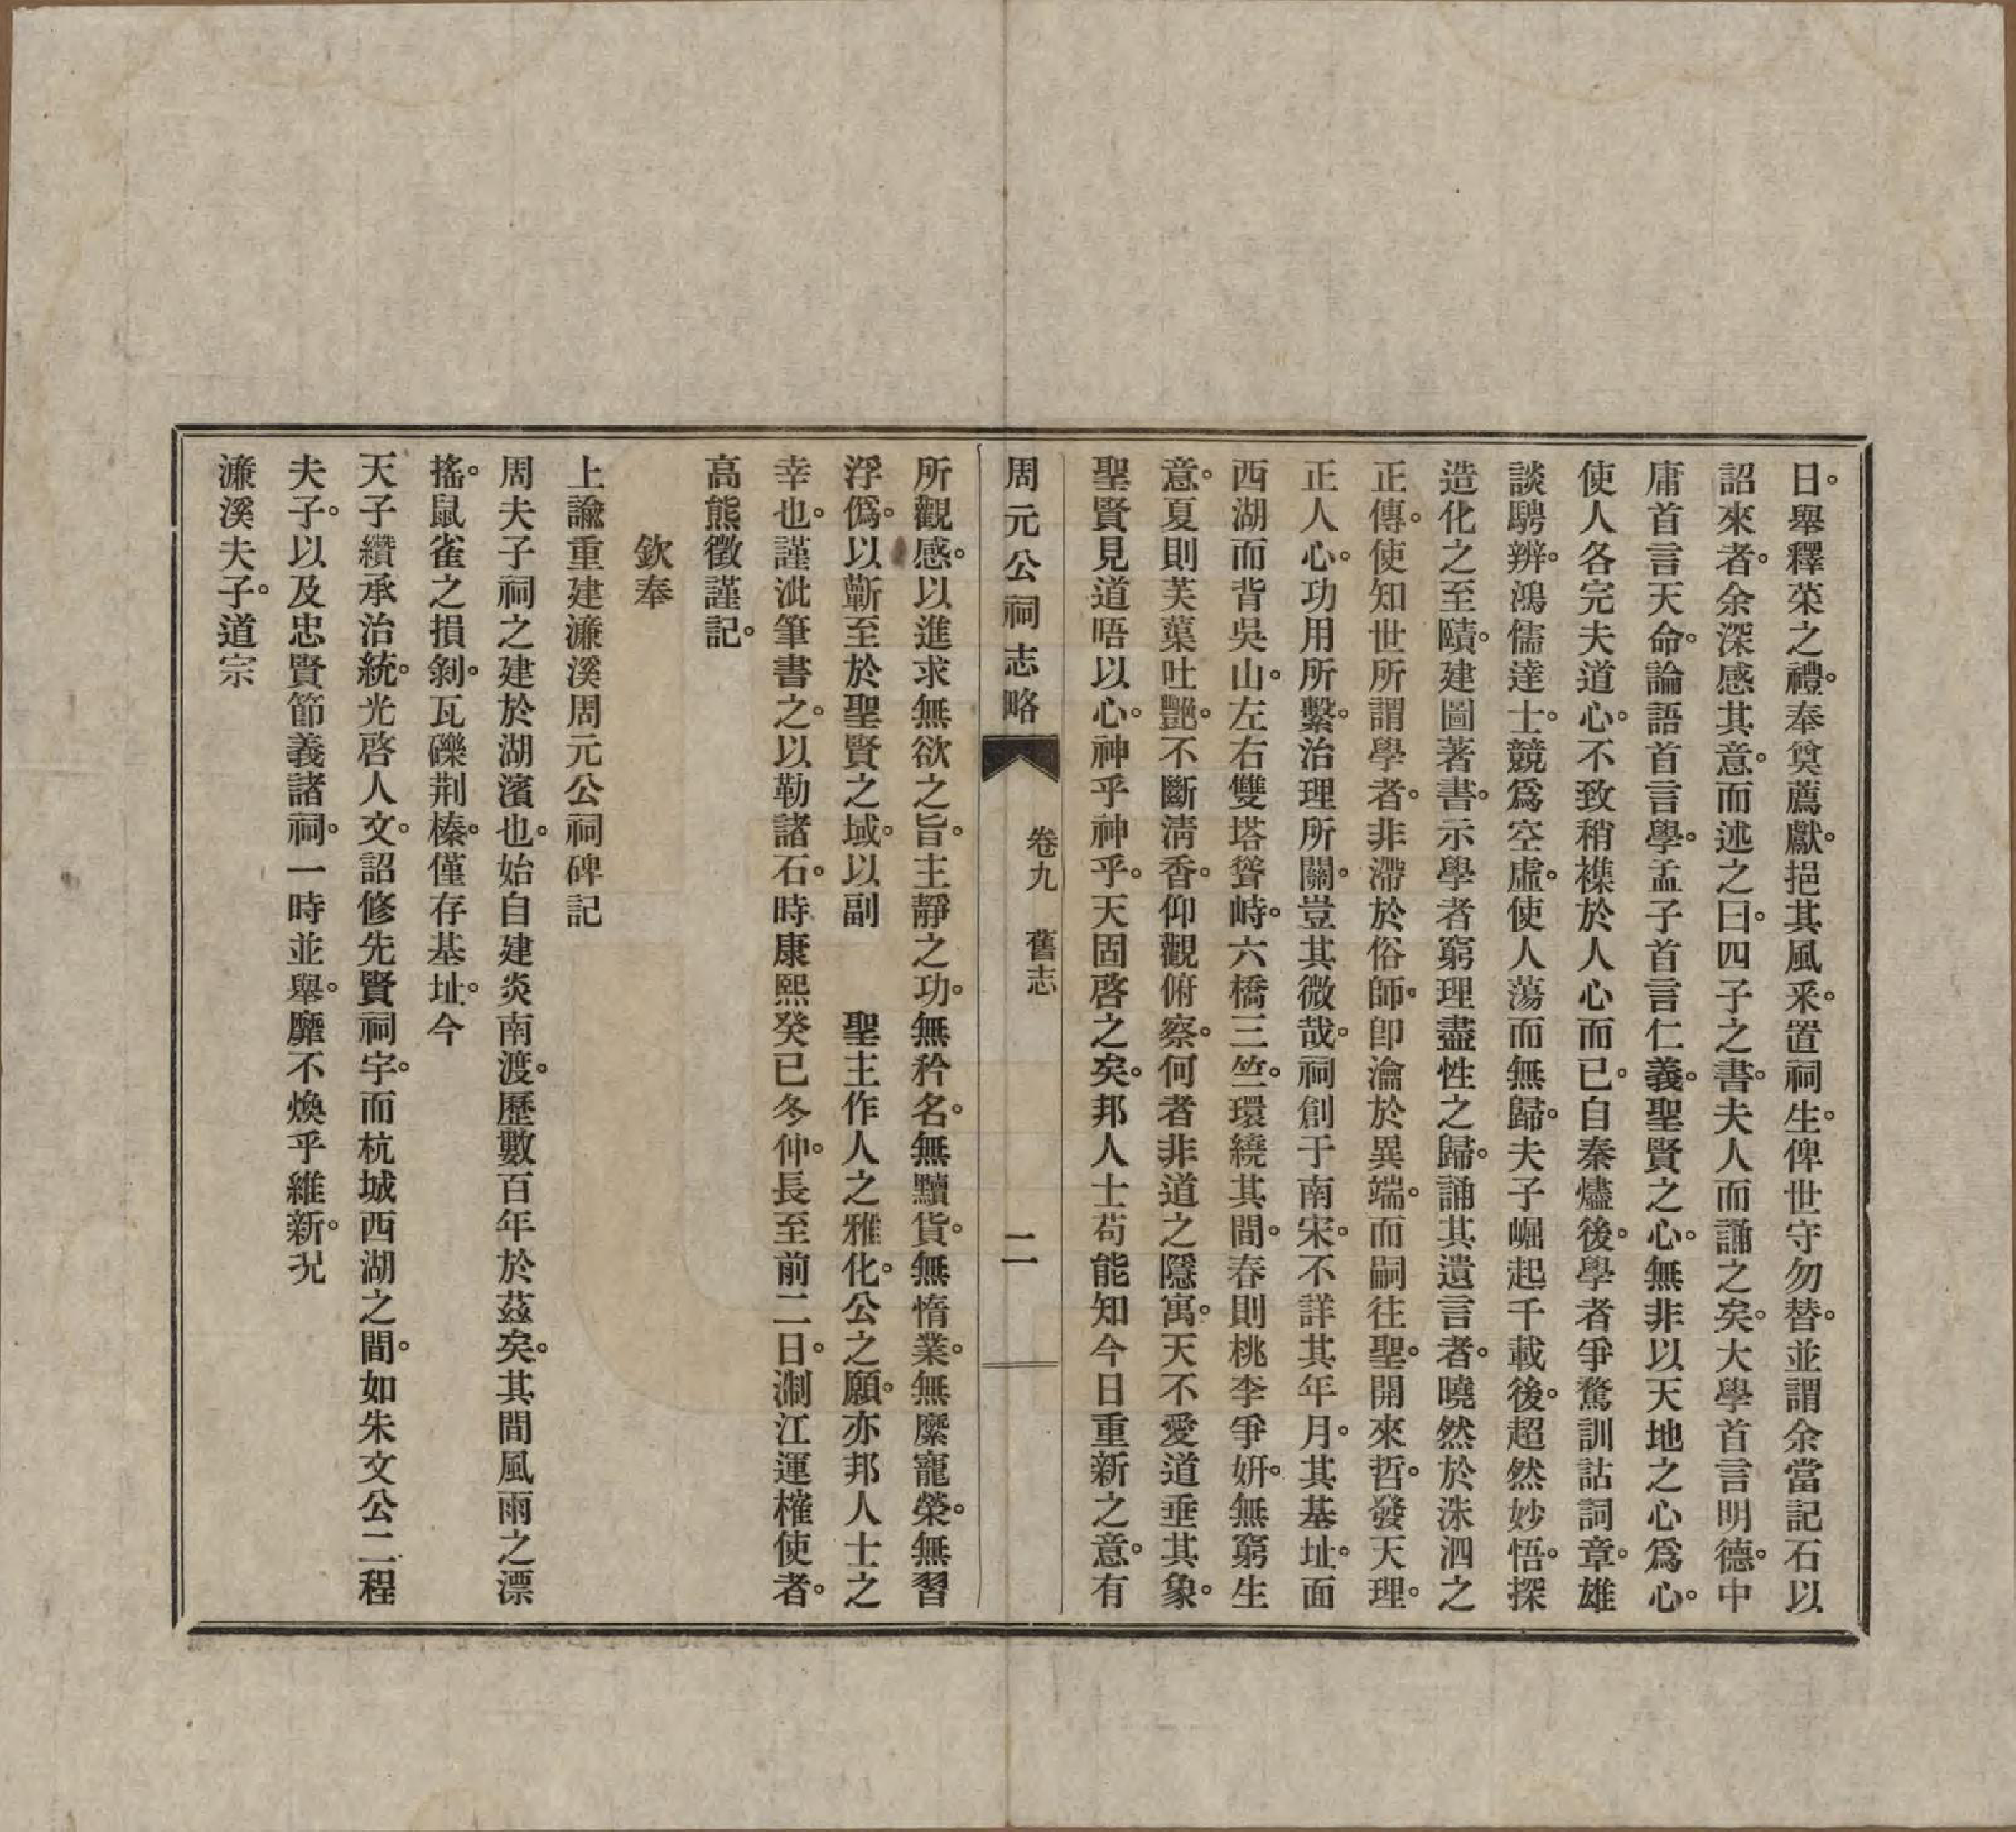 日。舉釋菜之禮。奉奠薦獻。挹其風釆。置祠生。俾世守勿替。並謂余當記石以
詔來者。余深感其意。而述之曰。四子之書。夫人而誦之矣。大學首言明德。中
庸首言天命。論語首言學。孟子首言仁義。聖賢之心。無非以天地之心爲心。
使人各完夫道心。不致稍襍於人心而已。自秦燼後。學者爭騖訓詁詞章。雄
談騁辨。鴻儒達士。競爲空虛。使人蕩而無歸。夫子崛起千載後。超然妙悟。探
造化之至賾。建圖著書。示學者窮理盡性之歸。誦其遺言者。曉然於洙泗之
正傳。使知世所謂學者。非滯於俗師。卽瀹於異端。而嗣往聖。開來哲。發天理。
正人心。功用所繫。治理所關。豈其微哉。祠創于南宋。不詳其年月。其基址。面
西湖而背吳山。左右雙塔聳峙。六橋三竺。環繞其間。春則桃李爭姸。無窮生
意。夏則芙蕖吐艷。不斷淸香。仰觀俯察。何者非道之隱寓。天不愛道垂其象。
聖賢見道唔以心。神乎神乎。天固啓之矣。邦人士苟能知今日重新之意。有
周元公祠志略 卷九 舊志 二
所觀感。以進求無欲之旨。主靜之功。無矜名。無黷貨。無惰業。無縻寵榮。無習
浮僞。以蘄至於聖賢之域。以副 聖主作人之雅化。公之願。亦邦人士之
幸也。謹泚筆書之。以勒諸石。時康熙癸巳冬仲。長至前二日。淛江運榷使者。
高熊徵謹記。
欽奉
上諭重建濂溪周元公祠碑記
周夫子祠之建於湖濱也。始自建炎南渡。歷數百年於茲矣。其間風雨之漂
搖。鼠雀之損剝。瓦礫荆榛。僅存基址。今
天子纘承治統。光啓人文。詔修先賢祠宇。而杭城西湖之間。如朱文公二程
夫子。以及忠賢節義諸祠。一時並舉。靡不煥乎維新。况
濂溪夫子。道宗